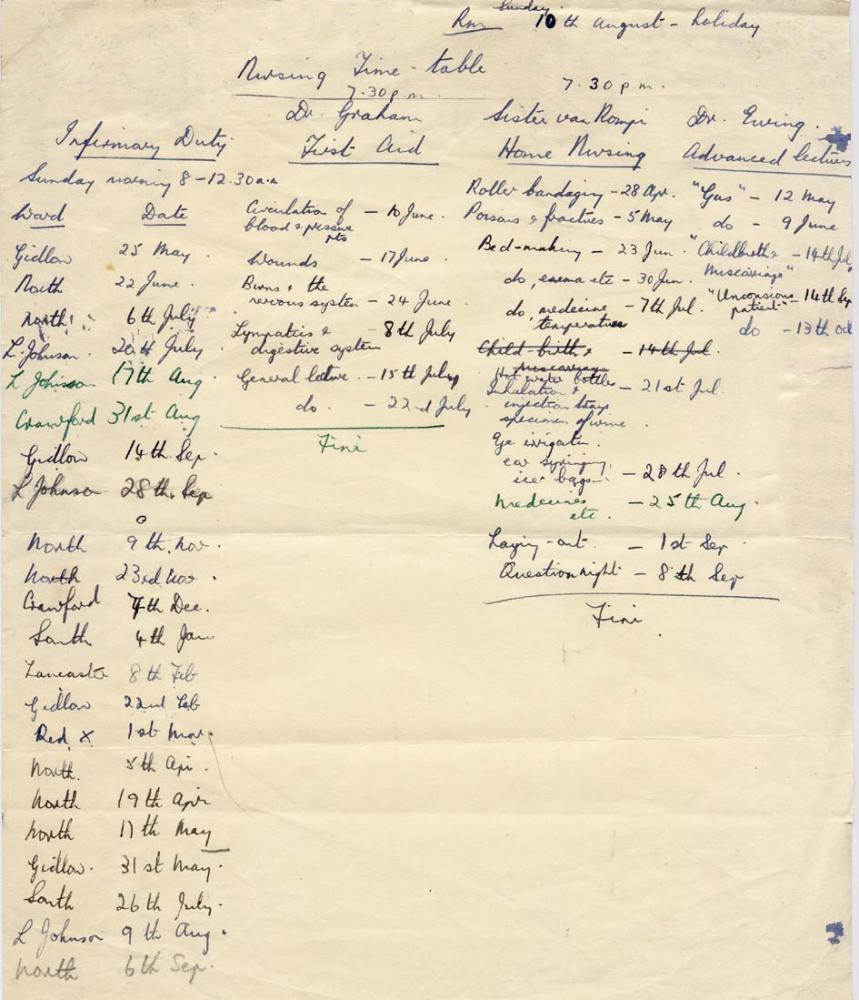 Sunday
Rm 10th August - holiday
Nursing Time-table
7.30 p.m.
7.30 p.m.
Infirmary Duty
Sunday morning 8-12.30
Ward Date
Gidlow 25 May
North 22 June.
North 6th July
L. Johnson. 20th July
L Johnson 17th Aug
Crawford 31st Aug
Gidlow 14th Sep.
L Johnson 28th Sep
North 9th. Nov.
North 23rd Nov.
Crawford 7th Dec.
South 4th Jan
Lancaster 8th Feb
Gidlow 22nd Feb
Red X 1st Mar.
North. 5th Apr.
North 19th Apr
North 17th May
Gidlow. 31st May.
South 26th July.
L Johnson 9th Aug.
North 6th Sep.
Dr. Graham
First Aid
Circulation of - 10 June.
blood & pressure
pts
Wounds - 17 June.
Burns & the
nervous system - 24 June.
Lympatics & - 8th July
digestive system
General lecture - 15th July
do. - 22nd July
Fini
Sister van Rompi
Home Nursing
Roller bandaging - 28 Apr.
Poisons & fractures - 5 May
Bed-making - 23 Jun.
do, enema etc - 30 Jun.
do, medicine - 7th Jul.
temperatures
Child-birth & - 14th Jul.
miscarriage
Hot water bottles
Inhalation & - 21st Jul
injection trays
specimen of urine.
Eye irrigation
ear syringing,
ice bags - 28th Jul.
Medicines - 25th Aug.
etc.
Laying-out. - 1st Sep
Question night - 8th Sep
Fini
Dr. Ewing.
Advanced lectures
"Gas" - 12 May
do - 9 June
"Childbirth & - 14th Jul
Miscarriage"
"Unconscious - 14th Sep
patient"
do - 13th Oct